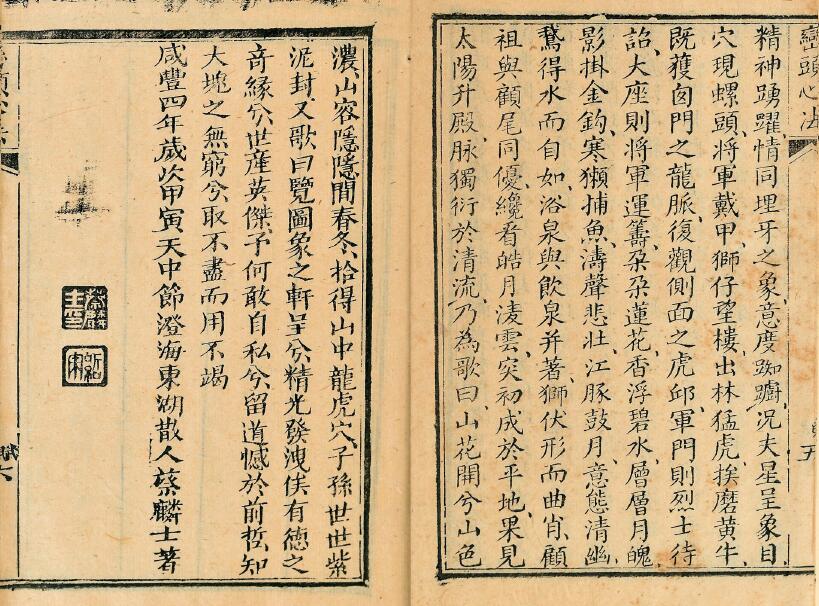 巒頭心法
精神踴躍、情同埋牙之象、意度踟躕、况夫星呈象目、
穴現螺頭、將軍戴甲、獅仔望樓、出林猛虎、挨磨黄牛、
既獲囪門之龍脈、復觀側面之虎邱、軍門則烈士待
詔、大座則將軍運籌、朶朶蓮花、香浮碧水、層層月魄、
影掛金鈎、寒獺捕魚、濤聲悲壯、江豚鼓月、意態清幽、
鵞得水而自如、浴泉與飲泉并著、獅伏形而曲肖、顧
祖與顧尾同優、纔看皓月淩雲、突初成於平地、果見
太陽升殿、脉獨衍於清流、乃為歌曰、山花開兮山色
濃、山容隱隱間春冬、拾得山中龍虎穴、子孫世世紫
泥封、又歌曰、覽圖象之軒呈兮、精光發洩、俟有德之
奇緣兮、世産英傑、予何敢自私兮、留道憾於前哲、知
大塊之無窮兮、取不盡而用不竭
咸豐四年歲次甲寅天中節澄海東湖散人蔡麟士著
賦六